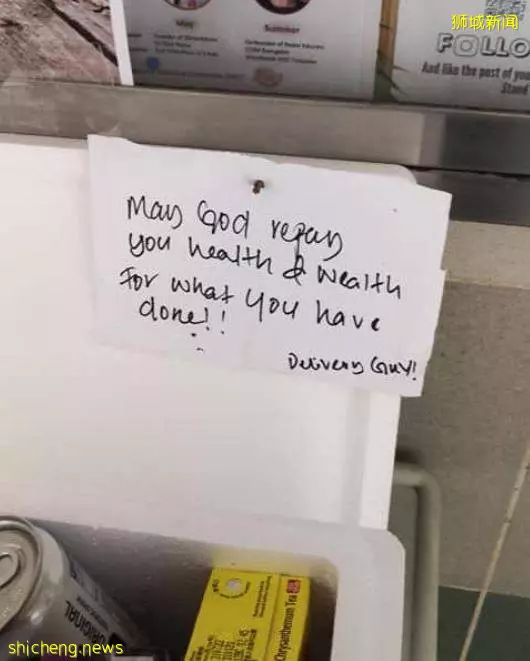 狮城新闻
May
Summer
FOLLO
And like the post of your
Stand
May God repay
you health & wealth
For what you have
done!!
Delivery Guy!
ORIGINAL
Chrysanthemum Tea
shicheng.news